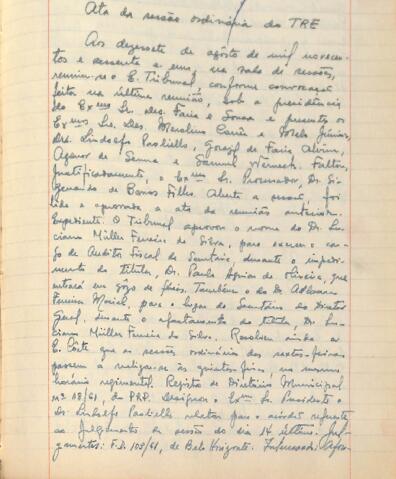 Ata da sessão ordinária do TRE
Aos dezessete de agosto de mil novecen-
tos e sessenta e um, na sala de sessões,
reuniu-se o E. Tribunal, conforme convocação
feita na última reunião, sob a presidência
do Exmo Sr. des. Faria e Sousa e presentes os
Exmos Srs. Des. Merolino Corrêa e Melo Júnior,
Drs. Lindolfo Paoliello, Gorazil de Faria Alvim,
Agenor de Senna e Samuel Werneck. Faltou,
justificadamente, o Exmo Sr. Procurador, Dr. Si-
de Barros Filho. Aberta a sessão, foi
lida e aprovada a ata da reunião anterior.
Expediente. O Tribunal aprovou o nome do Dr. Lu-
ciano Müller Ferreira da Silva, para exercer o car-
go de Auditor Fiscal da Secretaria, durante o impedi-
mento do titular, Dr. Paulo de Oliveira, que
entrará em gozo de férias. Também o do Dr.
Ferreira Maciel, para o lugar de Secretário do Diretor
Geral, durante o afastamento do titular, Dr. Lu-
ciano Müller Ferreira da Silva. Resolveu ainda a
E. Côrte que as sessões ordinárias das sextas-feiras
passem a realizar-se às quintas-feiras, no mesmo
horário regimental. Registro de Diretório Municipal
nº 18/61, do PRP. Designou o Exmo Sr. Presidente o
Dr. Lindolfo Paoliello relator para o acórdão referente
ao julgamento da sessão do dia 14 último. Jul-
gamentos: F.D. 103/61, de Belo Horizonte. Interessado: